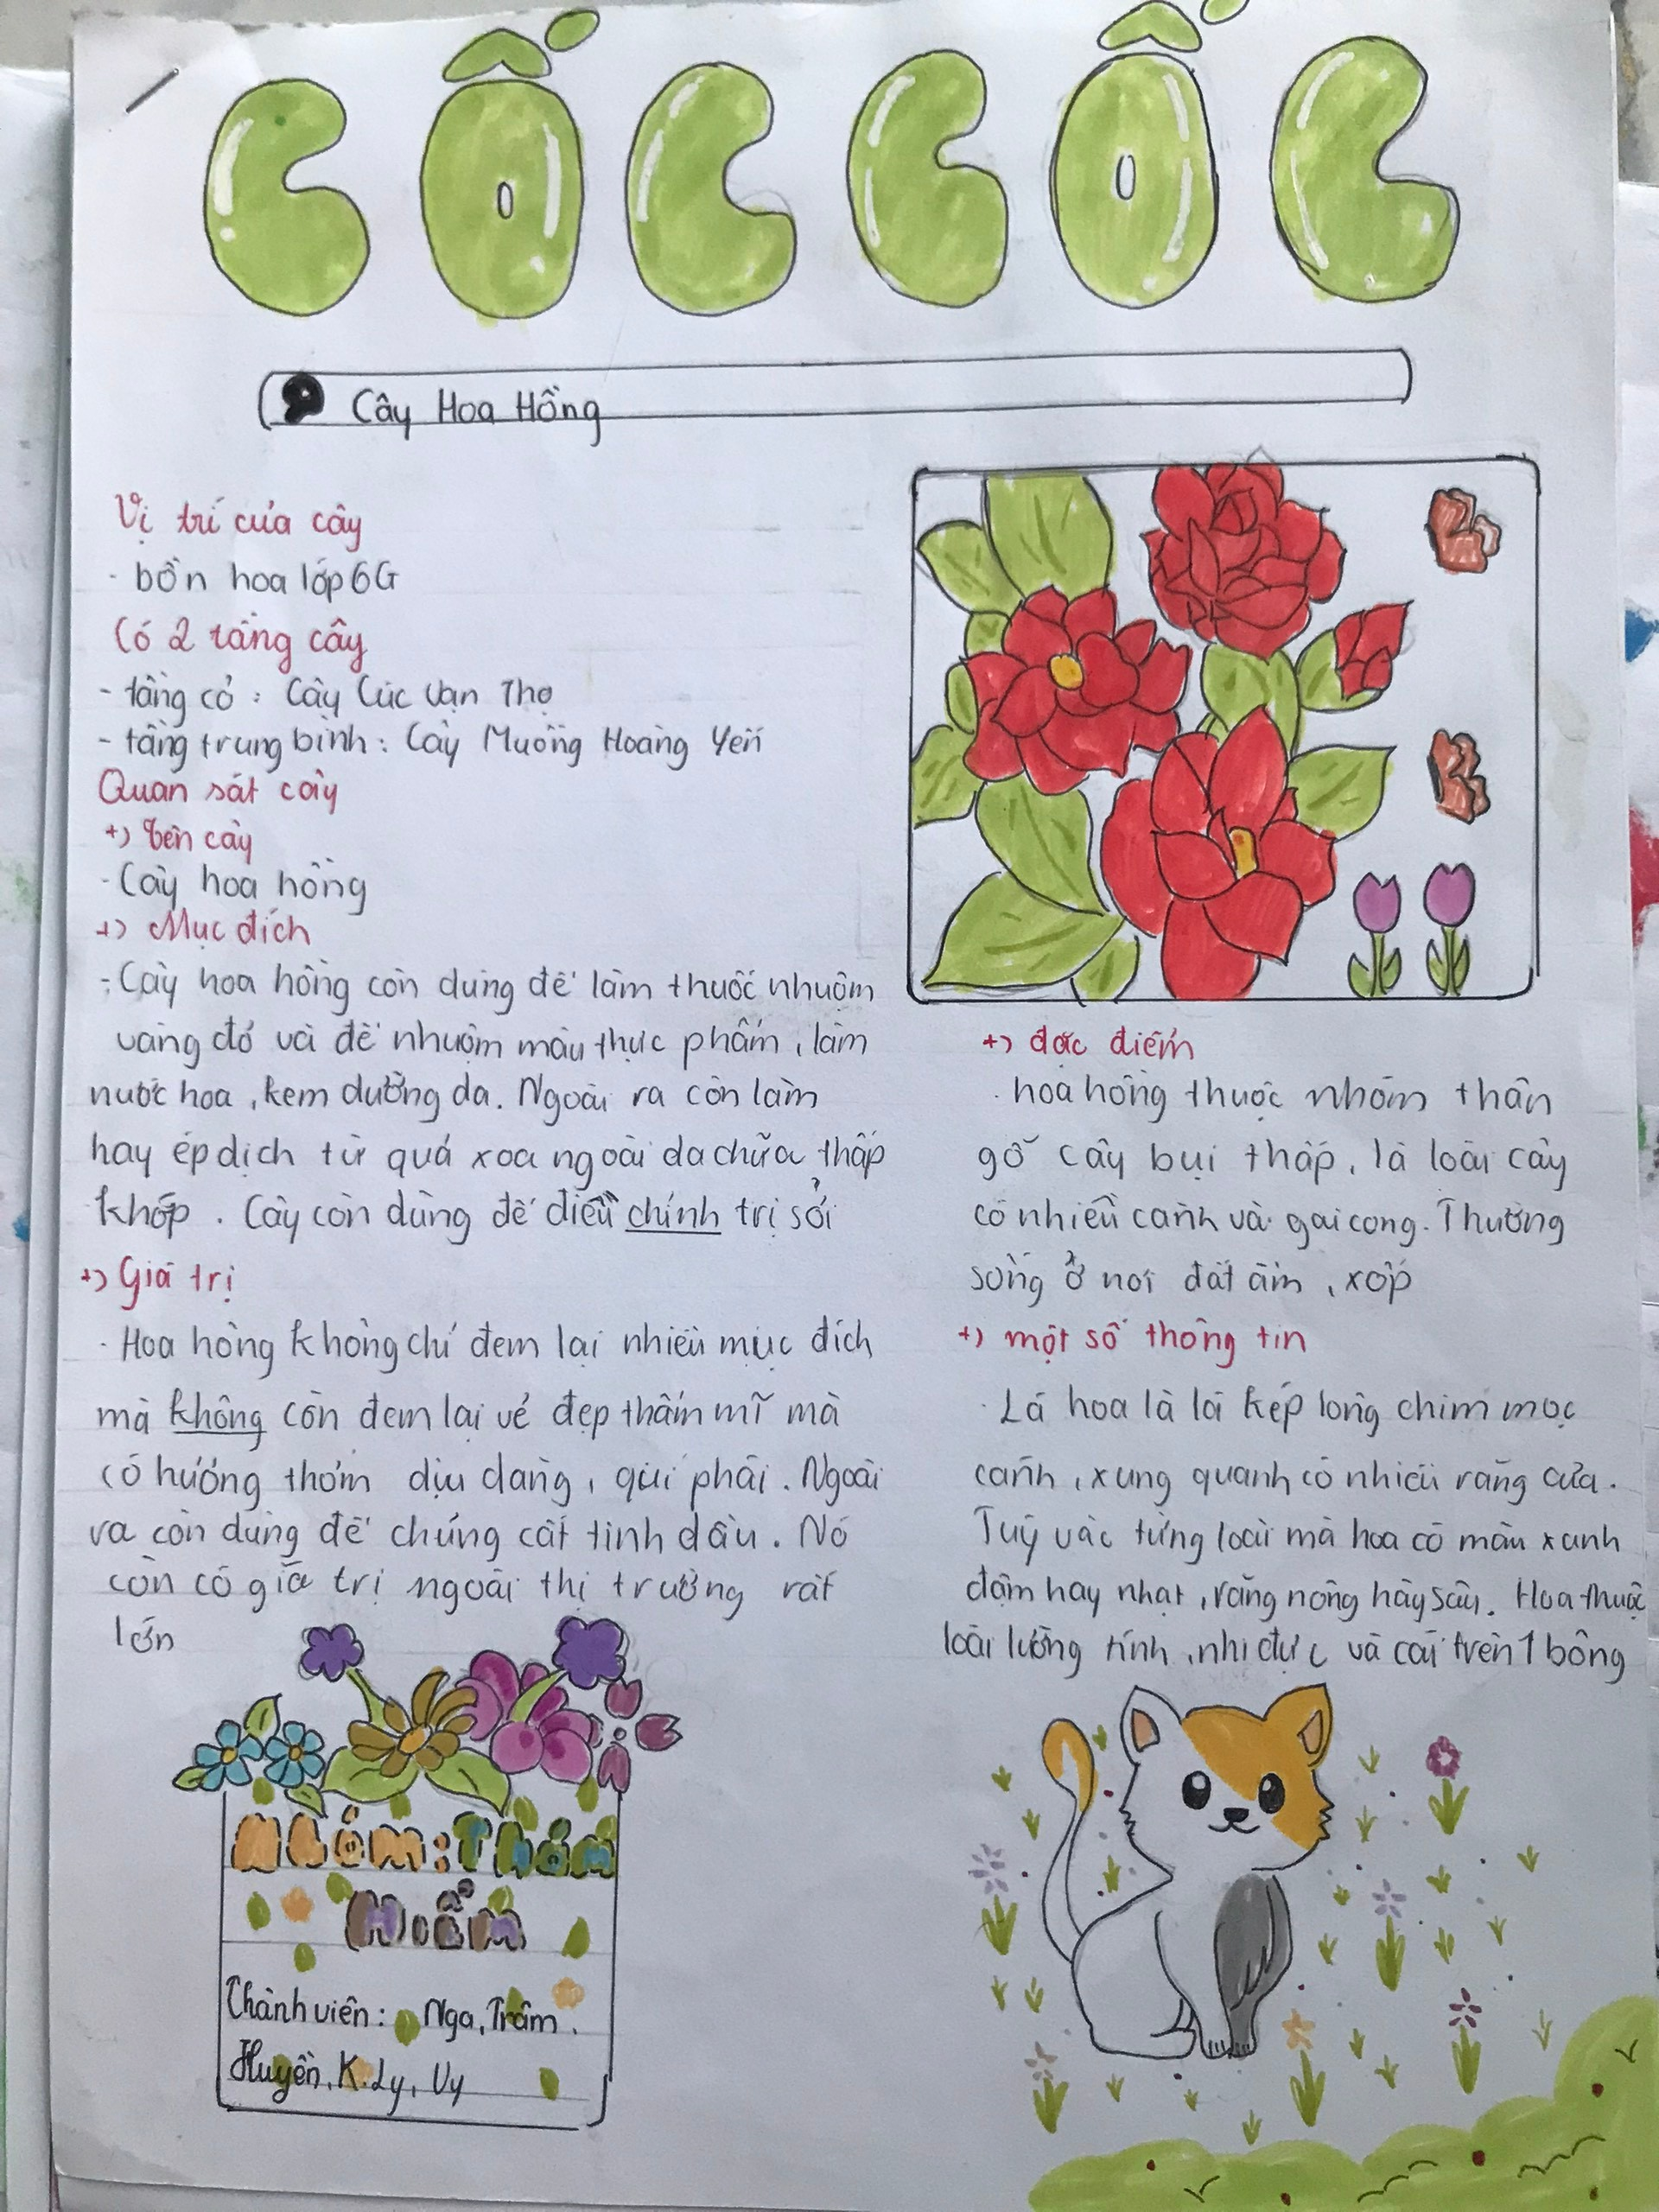 CỐC CỐC
Cây Hoa Hồng
Vị trí của cây
- bồn hoa lớp 6G
Có 2 tầng cây
- tầng cỏ : Cây Cúc Vạn Thọ
- tầng trung bình : Cây Muồng Hoàng Yến
Quan sát cây
+) Tên cây
- Cây hoa hồng
+) Mục đích
- Cây hoa hồng còn dùng để làm thuốc nhuộm
vàng đỏ và để nhuộm màu thực phẩm, làm
nước hoa, kem dưỡng da. Ngoài ra còn làm
hay ép dịch từ quả xoa ngoài da chữa thấp
khớp. Cây còn dùng để điều chỉnh trị sỏi
+) Giá trị
- Hoa hồng không chỉ đem lại nhiều mục đích
mà không còn đem lại vẻ đẹp thẩm mĩ mà
có hướng thơm dịu dàng, quí phái. Ngoài
ra còn dùng để chứng cất tinh dầu. Nó
còn có giá trị ngoài thị trường rất
lớn
+) đặc điểm
- hoa hồng thuộc nhóm thân
gỗ cây bụi thấp, là loài cây
có nhiều cành và gai cong. Thường
sống ở nơi đất ẩm, xốp
+) một số thông tin
- Lá hoa là lá kép lông chim mọc
cành, xung quanh có nhiều răng cưa.
Tuỳ vào từng loài mà hoa có màu xanh
đậm hay nhạt, răng nông hay sâu. Hoa thuộc
loài lưỡng tính, nhị đực và cái trên 1 bông
Nhóm: Thám
Hiểm
Thành viên: Nga, Trâm,
Huyền, K.Ly, Vy